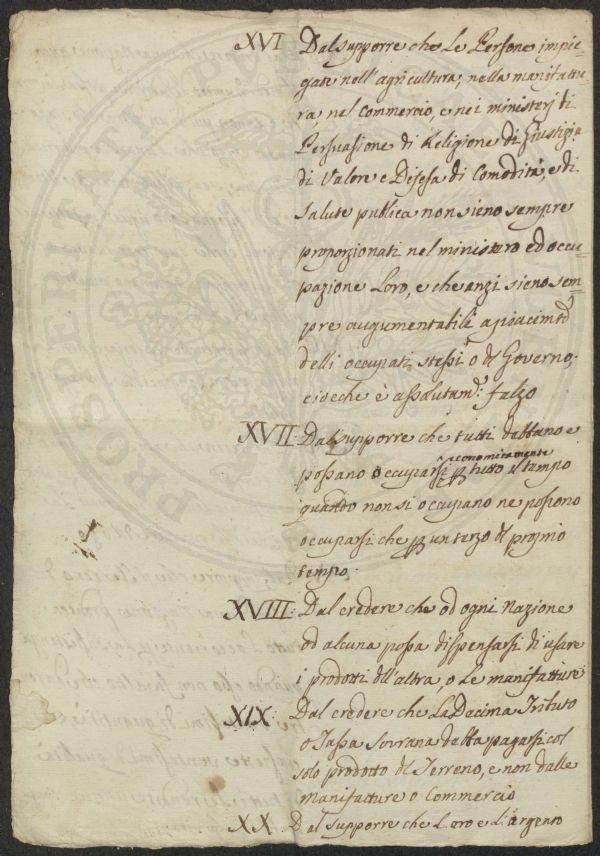 XVI Dal supporre che Le Persone impie-
gate nell'agricultura, nella manifattu-
ra, nel Commercio, e nei ministerj di
Persuasione di Religione di Giustizia
di Valore e Difesa di Comodità, e di
Salute publica non sieno sempre
proporzionati nel ministero ed occu-
pazione Loro, e che anzi sieno sem-
pre augumentabili a piacimto
delli occupati stessi o dl Governo,
cioeche è assolutamte: falzo
XVII: Dal supporre che tutti debbano e
possano occuparsi economicamente p tutto il tempo
quando non si occupano ne possono
occuparsi che p un terzo dl proprio
tempo.
XVIII: Dal credere che od ogni Nazione
od alcuna possa dispensarsi di usare
i prodotti dll'altra, o Le manifatture
XIX: Dal credere che La Decima Tributo
o Tassa Sovrana debba pagarsi col
solo prodotto dl Terreno, e non dalle
Manifatture o Commercio
XX: Dal supporre che L'oro e L'argento
PROSPERITÀ